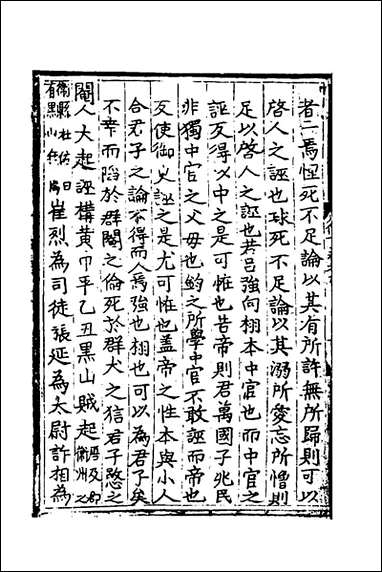 者一焉恆死不足論以其有所許無所歸則可以
啓人之誣也球死不足論以其溺所愛忘所憎則
足以啓人之誣也若呂強向栩本中官也而中官之
誣反得以中之是可恠也昔帝則君萬國子兆民
非獨中官之父母也鈞之所學中官不敢誣而帝也
反使御史誣之是尤可恠也蓋帝之性本與小人
合君子之論不得而入焉強也栩也可以為君子矣
不幸而陷於群閹之倫死於群犬之狺君子愍之
閹人大起誣構黃巾平乙丑黑山賊起
衛縣杜佑曰
有黑山
崔烈為司徒張延為太尉許相為